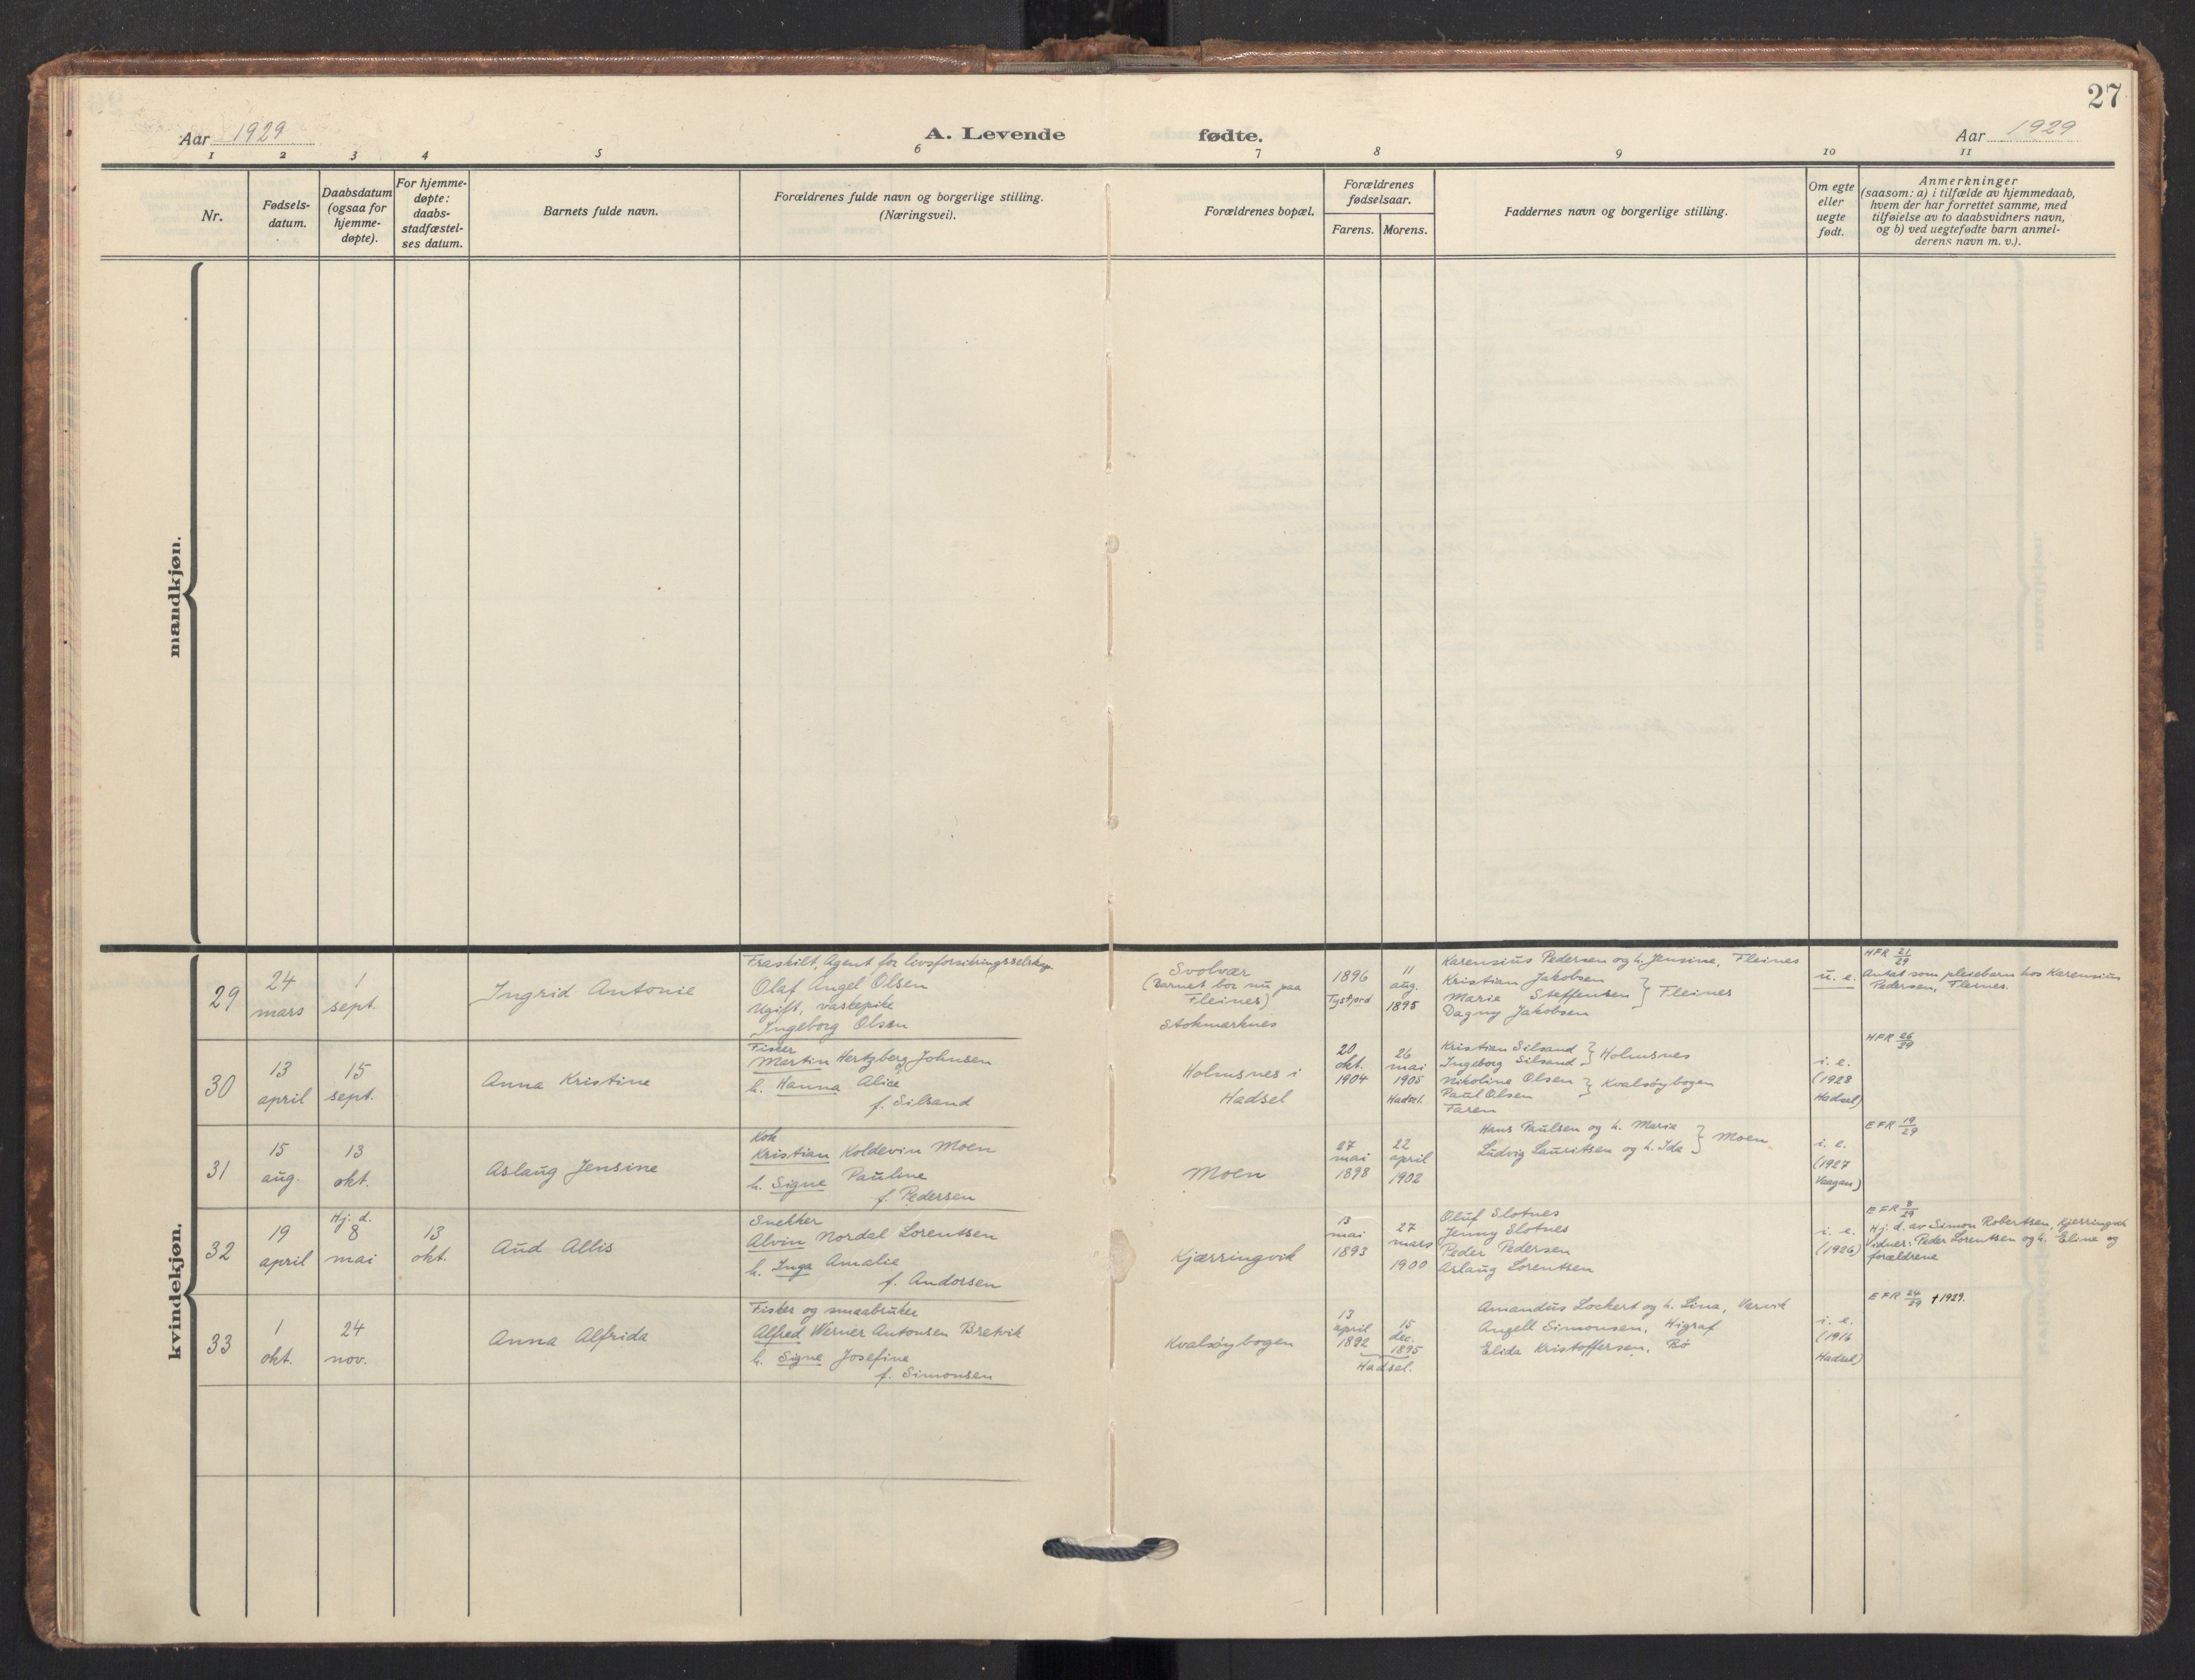 27
Aar 1929
A. Levende fødte.
Aar 1929
1 2 3 4 5 6 7 8 9 10 11
Nr.
Fødsels-
datum.
Daabsdatum
(ogsaa for
hjemme-
døpte).
For hjemme-
døpte:
daabs-
stadfæstel-
ses datum.
Barnets fulde navn.
Forældrenes fulde navn og borgerlige stilling.
(Næringsvei).
Forældrenes bopæl.
Forældrenes
fødselsaar.
Farens. Morens.
Faddernes navn og borgerlige stilling.
Om egte
eller
uegte
født.
Anmerkninger
(saasom: a) i tilfælde av hjemmedaab,
hvem der har forrettet samme, med
tilføielse av to daabsvidners navn,
og b) ved uegtefødte barn anmel-
derens navn m. v.).
mandkjøn.
kvindekjøn.
29
24
mars
1
sept.
Ingrid Antonie
Fraskilt, Agent for livsforsikringsselskap
Olaf Angel Olsen
Ugift, vaskepike
Ingeborg Olsen
Svolvær
(Barnet bor nu paa
Fleines)
Stokmarknes
1896
Tysfjord
11
aug.
1895
Karensius Pedersen og h. Jensine, Fleines
Kristian Jakobsen
Marie Steffensen } Fleines
Dagny Jakobsen
u. e.
HFR 21/29
Antat som pleiebarn hos Karensius
Pedersen, Fleines.
30
13
april
15
sept.
Anna Kristine
Fisker
Martin Hertzberg Johnsen
h. Hanna Alice
f. Silsand
Holmsnes i
Hadsel
20
okt.
1904
26
mai
1905
Hadsel.
Kristian Silsand
Ingeborg Silsand } Holmsnes
Nikoline Olsen
Paul Olsen } Kvalsöybogen
Faren
i. e.
(1928
Hadsel)
HFR 26/29
31
15
aug.
13
okt.
Aslaug Jensine
Kok
Kristian Koldevin Moen
h. Signe Pauline
f. Pedersen
Moen
27
mai
1898
22
april
1902
Hans Paulsen og h. Marie
Ludvig Lauritsen og h. Ida } Moen.
i. e.
(1927
Vaagan)
EFR 19/29
32
19
april
Hj. d.
8
mai
13
okt.
Aud Allis
Snekker
Alvin Nordal Lorentsen
h. Inga Amalie
f. Andorsen
Kjærringvik
13
mai
1893
27
mars
1900
Oluf Slotnes
Jenny Slotnes
Peder Pedersen
Aslaug Lorentsen
i. e.
(1926)
EFR 8/29
Hj. d. av Simon Robertsen, Kjerringvik
Vidner: Peder Lorentsen og h. Eline og
forældrene
33
1
okt.
24
nov.
Anna Alfrida
Fisker og smaabruker
Alfred Werner Antonsen Bretvik
h. Signe Josefine
f. Simonsen
Kvalsöybogen
13
april
1892
15
dec.
1895
Hadsel.
Amandus Lockert og h. Lina, Varvik
Angell Simonsen, Higraf
Elida Kristoffersen, Bö
i. e.
(1916
Hadsel)
EFR 24/29 †1929.